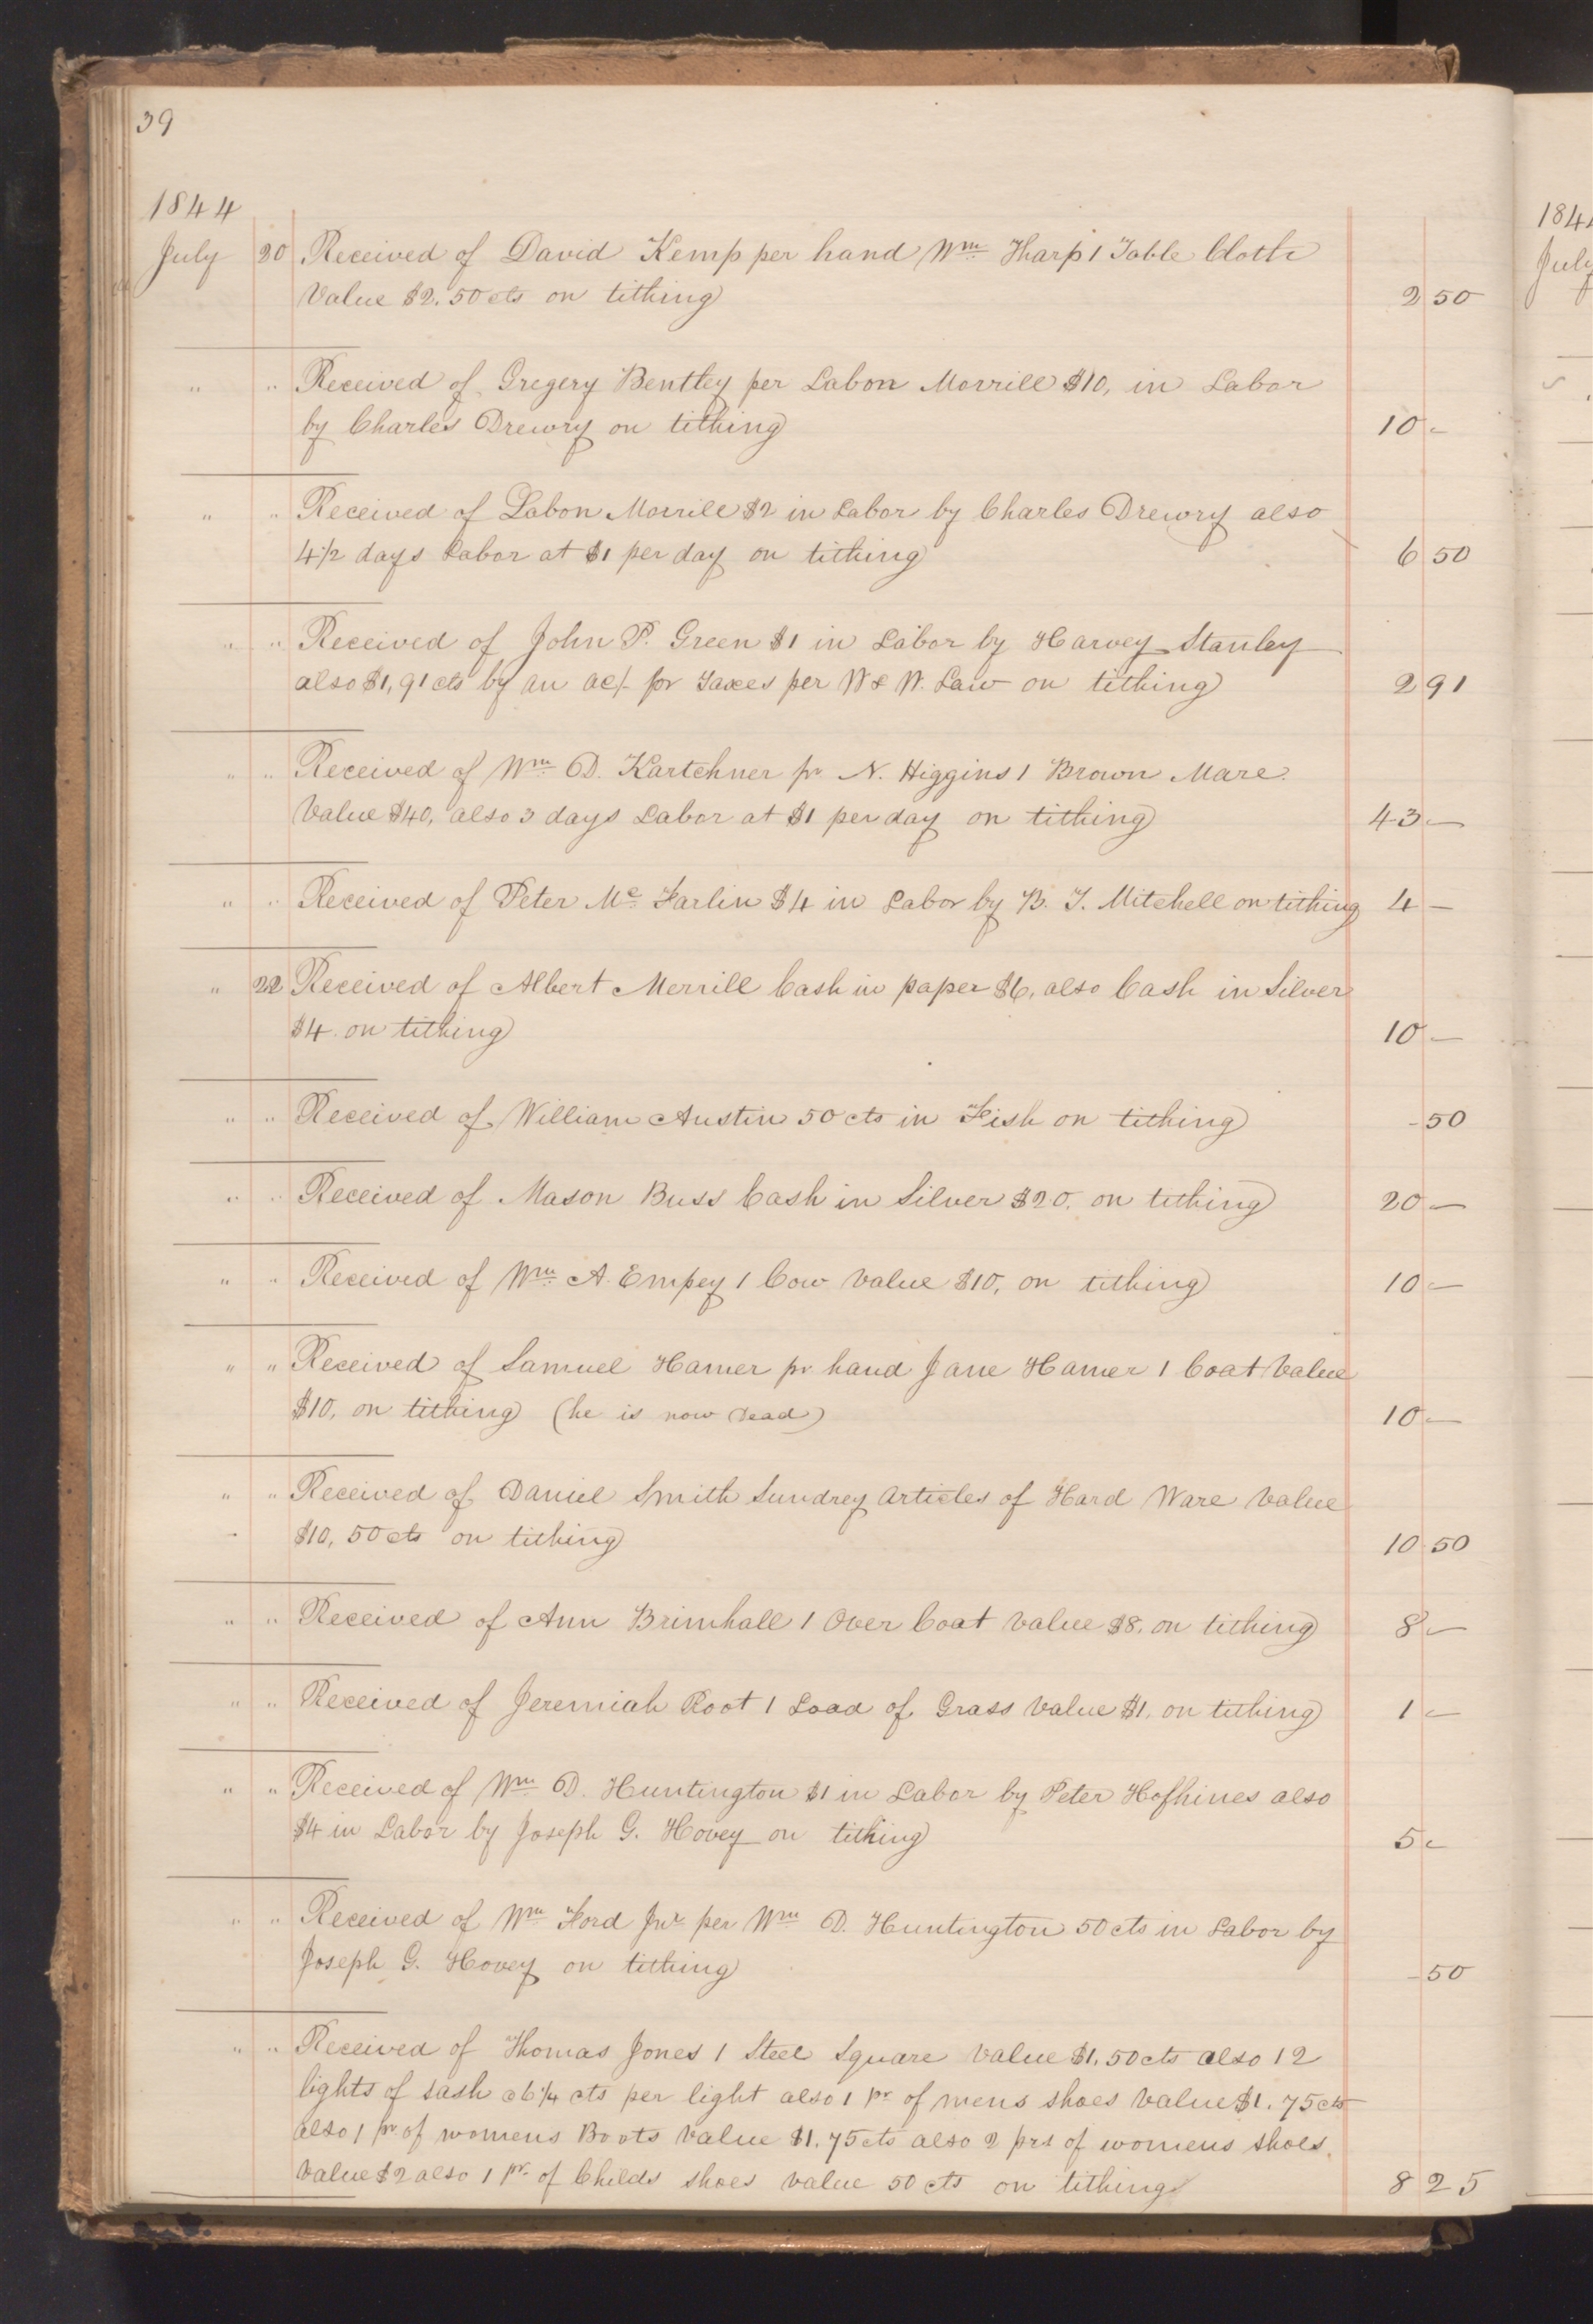 39
1844
July 20 Received of David Kemp per hand Wm Tharp 1 Table Cloth
Value $2.50 cts on tithing 2 50
" " Received of Gregery Bentley per Labon Morrill $10, in Labor
by Charles Drewry on tithing 10 -
" " Received of Labon Morrill $2 in Labor by Charles Drewry also
4 1/2 days Labor at $1 per day on tithing 6 50
" " Received of John P. Green $1 in Labor by Harvey Stanley
also $1,91 cts by an ac/- for Taxes per W & W. Law on tithing 2 91
" " Received of Wm D. Kartchner pr N. Higgins 1 Brown Mare.
Value $40, also 3 days Labor at $1 per day on tithing 43 -
" " Received of Peter Mc Farlin $4 in Labor by B. T. Mitchell on tithing 4 -
" 22 Received of Albert Merrill Cash in paper $6, also Cash in Silver
$4. on tithing 10 -
" " Received of William Austin 50 cts in Fish on tithing - 50
" " Received of Mason Buss Cash in Silver $20. on tithing 20 -
" " Received of Wm A. Empey 1 Cow Value $10, on tithing 10 -
" " Received of Samuel Hamer pr hand Jane Hamer 1 Coat Value
$10, on tithing (he is now Dead) 10 -
" " Received of Daniel Smith Sundrey Articles of Hard Ware Value
$10, 50 cts on tithing 10 50
" " Received of Ann Brimhall 1 Over Coat Value $8. on tithing 8 -
" " Received of Jeremiah Root 1 Load of Grass Value $1. on tithing 1 -
" " Received of Wm D. Huntington $1 in Labor by Peter Hofhines also
$4 in Labor by Joseph G. Hovey on tithing 5 -
" " Received of Wm Ford Jnr per Wm D. Huntington 50 cts in Labor by
Joseph G. Hovey on tithing - 50
" " Received of Thomas Jones 1 Steel Square Value $1.50 cts also 12
lights of sash a 6 1/4 cts per light also 1 pr of mens shoes Value $1.75 cts
also 1 pr of womens Boots Value $1.75 cts also 2 prs of womens shoes.
Value $2 also 1 pr. of Childs shoes Value 50 cts on tithing 8 25
184
July